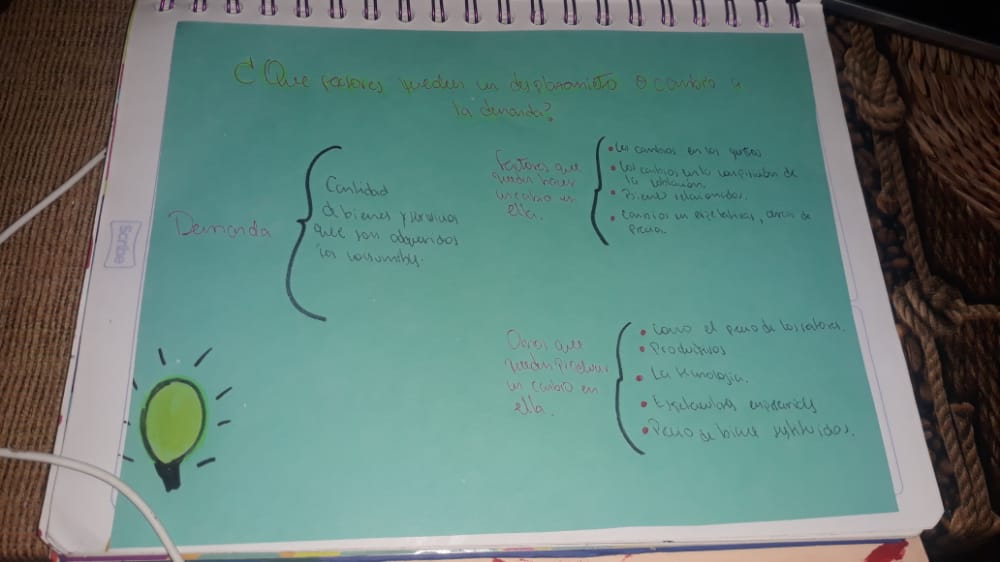 ¿Que factores pueden un desplazamiento o cambio a
la demanda?
Demanda
Cantidad
de bienes y servicios
que son adquiridos
Factores que
pueden hacer
un cambio en
ella.
• Los cambios en los gustos
• Los cambios en la composición de
la población.
• Bienes relacionados.
• Cambios en expectativas, de
precios
Otros que
pueden producir
un cambio en
ella.
• Como el precio de los factores.
• Productivos
• La tecnologia.
• Expectativas empresariales
• Precio de bienes sustituidos.
Scribe